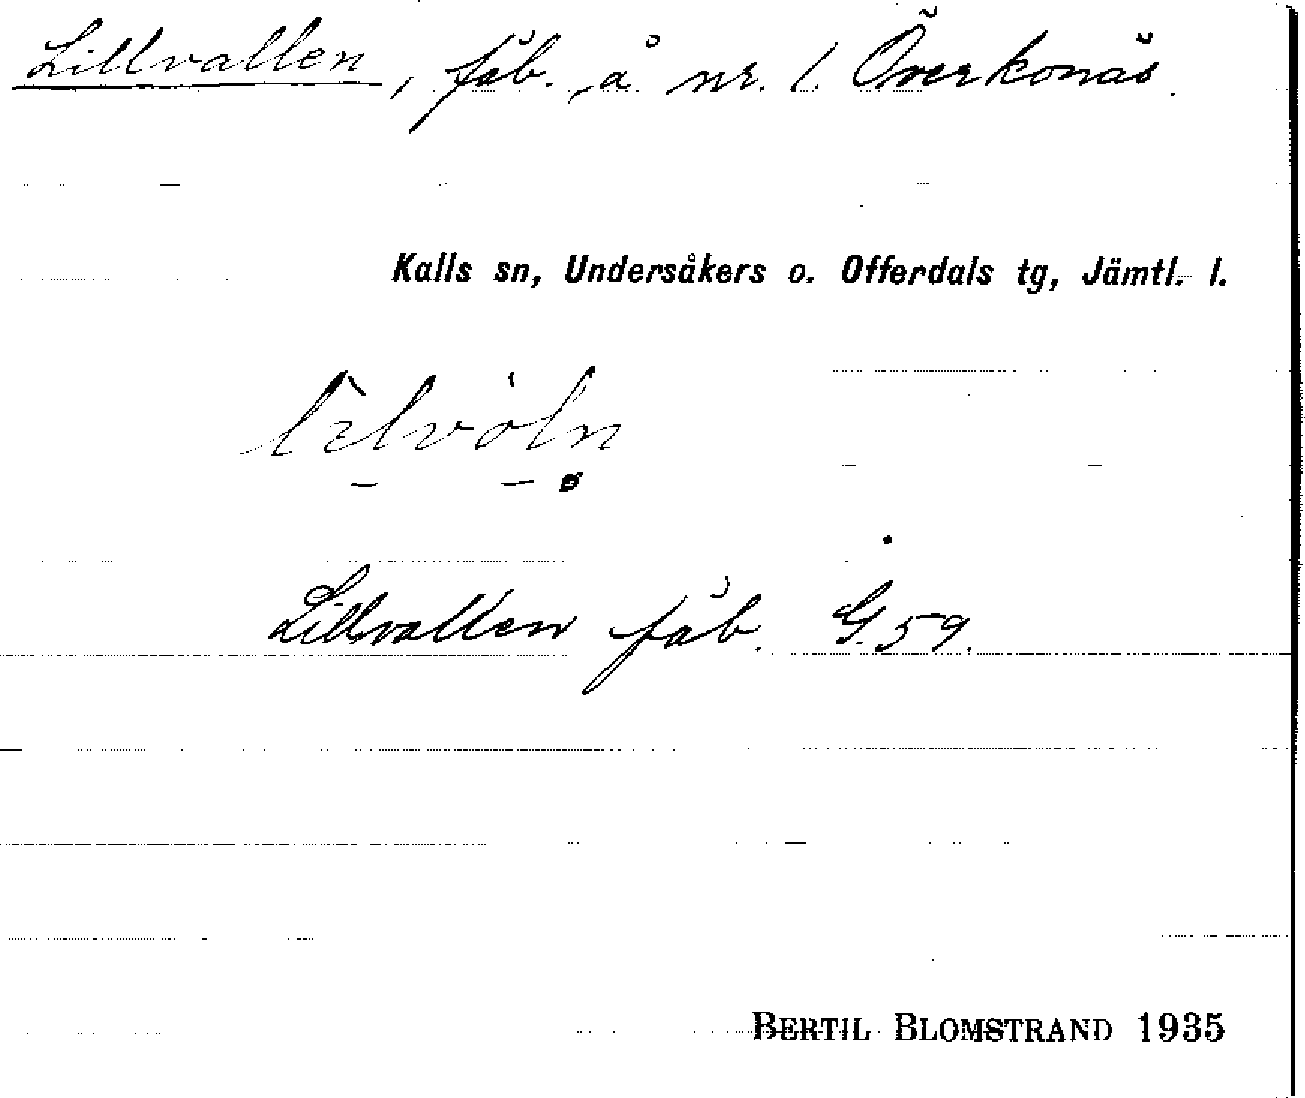 Lillvallen, fäb. å nr. 1. Överkonäs.
Kalls sn, Undersåkers o. Offerdals tg, Jämtl. l.
Lillvallen fäb. G. 59.
BERTIL BLOMSTRAND 1935